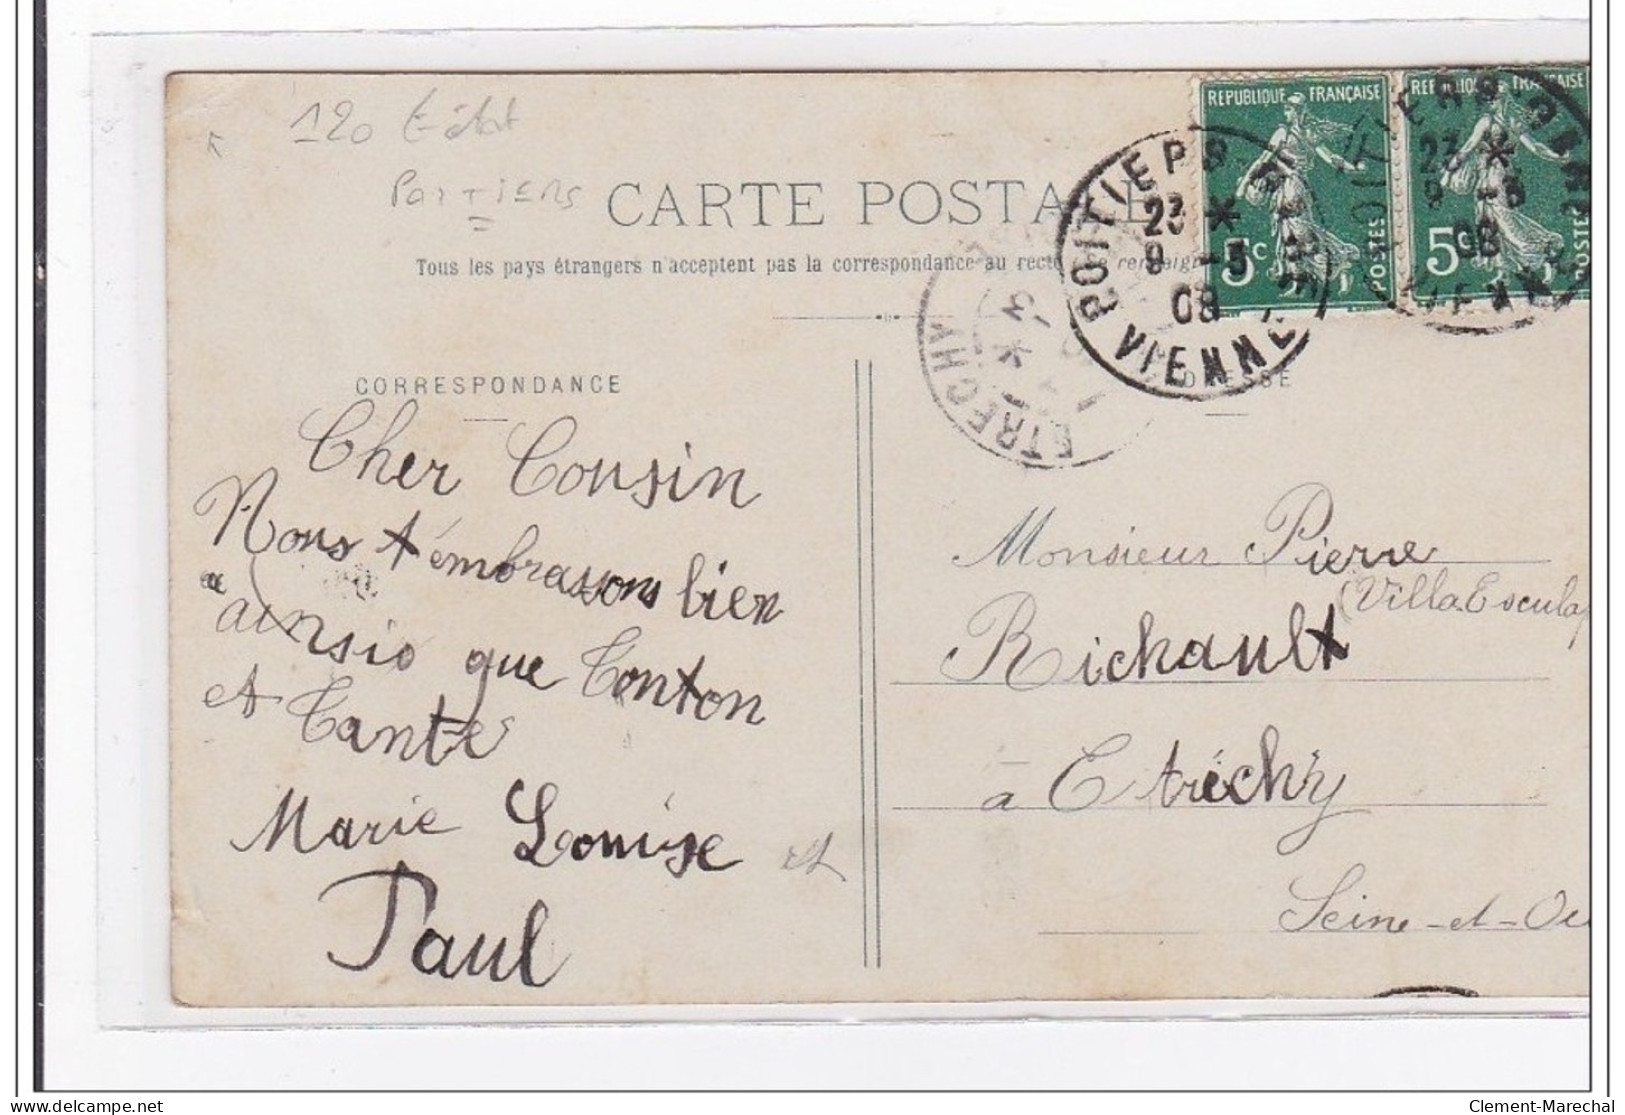 120 Etat
Partiers
CARTE POSTALE
Tous les pays étrangers n'acceptent pas la correspondance au recto (se renseign
REPUBLIQUE FRANÇAISE
5c
POSTES
REPUBLIQUE FRANÇAISE
5c
POSTES
POITIERS GARE
23 *
9 -3
08
VIENNE
POITIERS GARE
23 *
9 -3
08
VIENNE
ETRECHY
CORRESPONDANCE
ADRESSE
Cher Cousin
Nous t'émbrassons bien
ainsio que Tonton
et Tante
Marie Louise et
Paul
Monsieur Pierre
(Villa Esculap
Richault
à Etréchy
Seine-et-Oi
Clement-Marechal